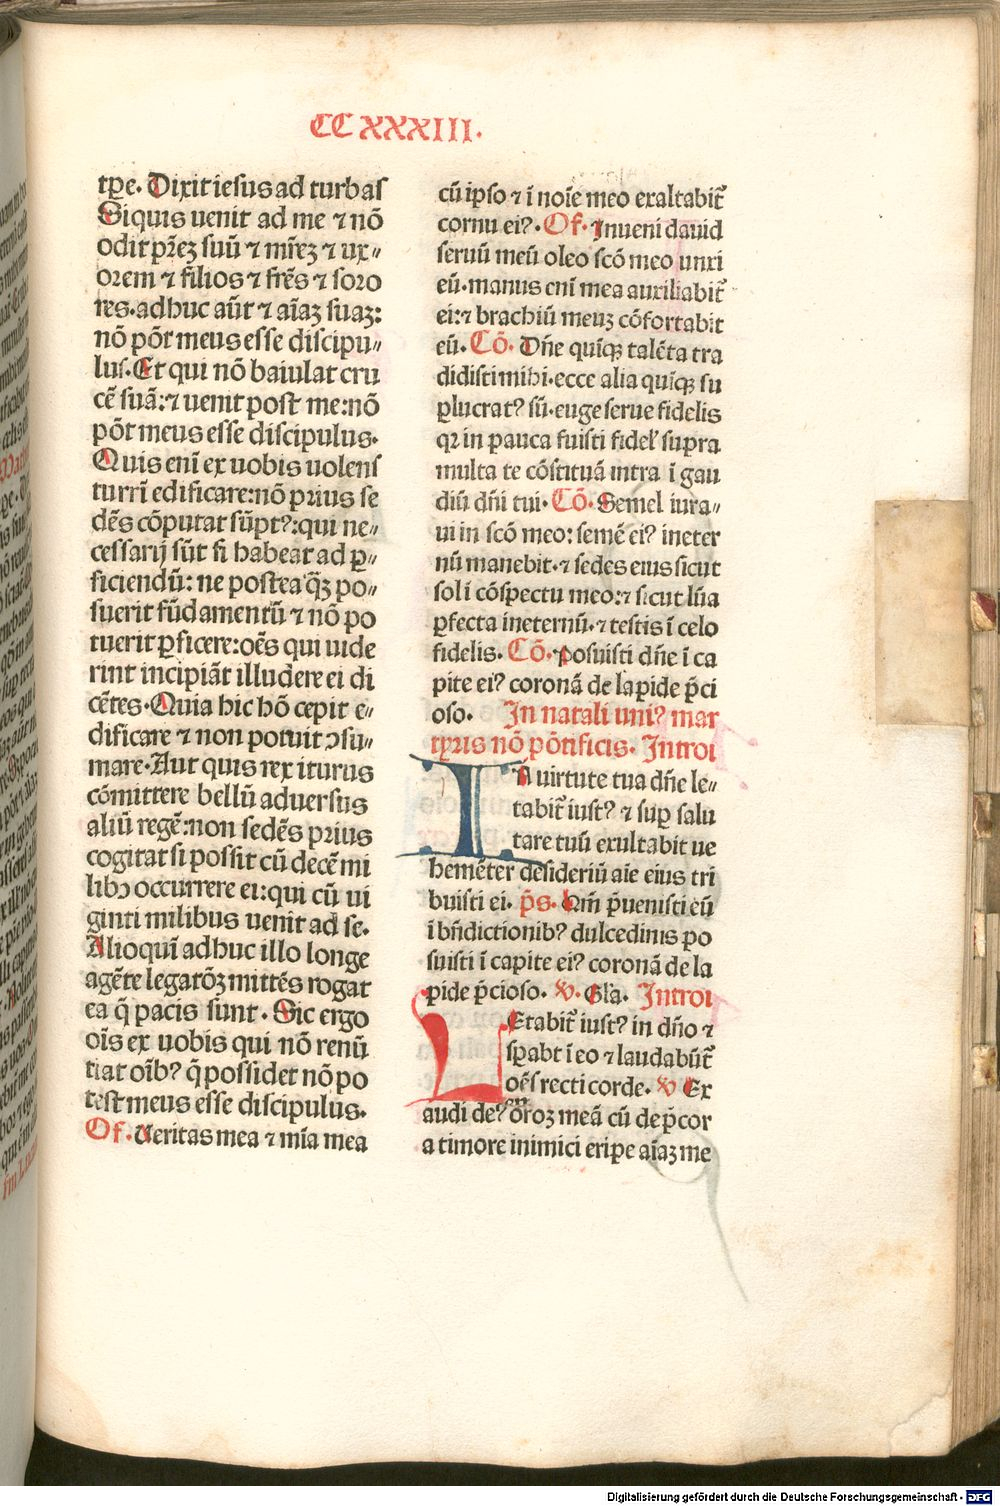 CCXXXIII.
tꝑe. Dixit iesus ad turbas
Siquis uenit ad me ⁊ nō
odit pr̄eꝫ suū ⁊ mr̄eꝫ ⁊ ux⸗
orem ⁊ filios ⁊ fr̄es ⁊ soro
res. adhuc aūt ⁊ aīaꝫ suaꝫ:
nō pōt meus esse discipu⸗
lus. Et qui nō baiulat cru
cē suā: ⁊ uenit post me: nō
pōt meus esse discipulus.
Quis enī ex uobis uolens
turrī edificare: nō prius se
dēs cōputat sūptꝰ: qui ne⸗
cessarij sūt si habeat ad ꝑ⸗
ficiendū: ne postea q̄ꝫ po⸗
suerit fūdamentū ⁊ nō po
tuerit ꝑficere: oēs qui uide
rint incipiāt illudere ei di
cētes. Quia hic hō cepit e⸗
dificare ⁊ non potuit ꝯsu⸗
mare. Aut quis rex iturus
cōmittere bellū aduersus
aliū regē: non sedēs prius
cogitat si possit cū decē mi
libꝯ occurrere ei: qui cū ui
ginti milibus uenit ad se.
Alioquī adhuc illo longe
agēte legatōꝫ mittēs rogat
ea q̄ pacis sunt. Sic ergo
oīs ex uobis qui nō renū
tiat oībꝰ q̄ possidet nō po
test meus esse discipulus.
Of. Ueritas mea ⁊ mīa mea
cū ipso ⁊ ī noīe meo exaltabit̄
cornu eiꝰ. Of. Inueni dauid
seruū meū oleo scō meo unxi
eū. manus enī mea auxiliabit̄
ei: ⁊ brachiū meuꝫ cōfortabit
eū. Cō. Dn̄e quīqꝫ talēta tra
didisti mihi. ecce alia quīqꝫ su
ꝑlucratꝰ sū. euge serue fidelis
qꝛ in pauca fuisti fidel̕ supra
multa te cōstituā intra ī gau
diū dn̄i tui. Cō. Semel iura⸗
ui in scō meo: semē eiꝰ ineter
nū manebit. ⁊ sedes eius sicut
sol ī cōspectu meo: ⁊ sicut lūa
ꝑfecta ineternū. ⁊ testis ī celo
fidelis. Cō. Posuisti dn̄e ī ca
pite eiꝰ coronā de lapide p̄ci
oso. In natali uniꝰ mar
tyris nō pōtificis. Introi
IN uirtute tua dn̄e le⸗
tabit̄ iustꝰ ⁊ suꝑ salu
tare tuū exultabit ue
hemēter desideriū aīe eius tri
buisti ei. p̄s. Qm̄ p̄uenisti eū
ī bn̄dictionibꝰ dulcedinis po
suisti ī capite eiꝰ coronā de la
pide p̄cioso. ꝟ. Gl̄a. Introi
LEtabit̄ iustꝰ in dn̄o ⁊
sꝑabt ī eo ⁊ laudabūt̄
oēs recti corde. ꝟ Ex
audi deꝰ ōroꝫ meā cū dep̄cor
a timore inimici eripe aīaꝫ me
Digitalisierung gefördert durch die Deutsche Forschungsgemeinschaft - DFG